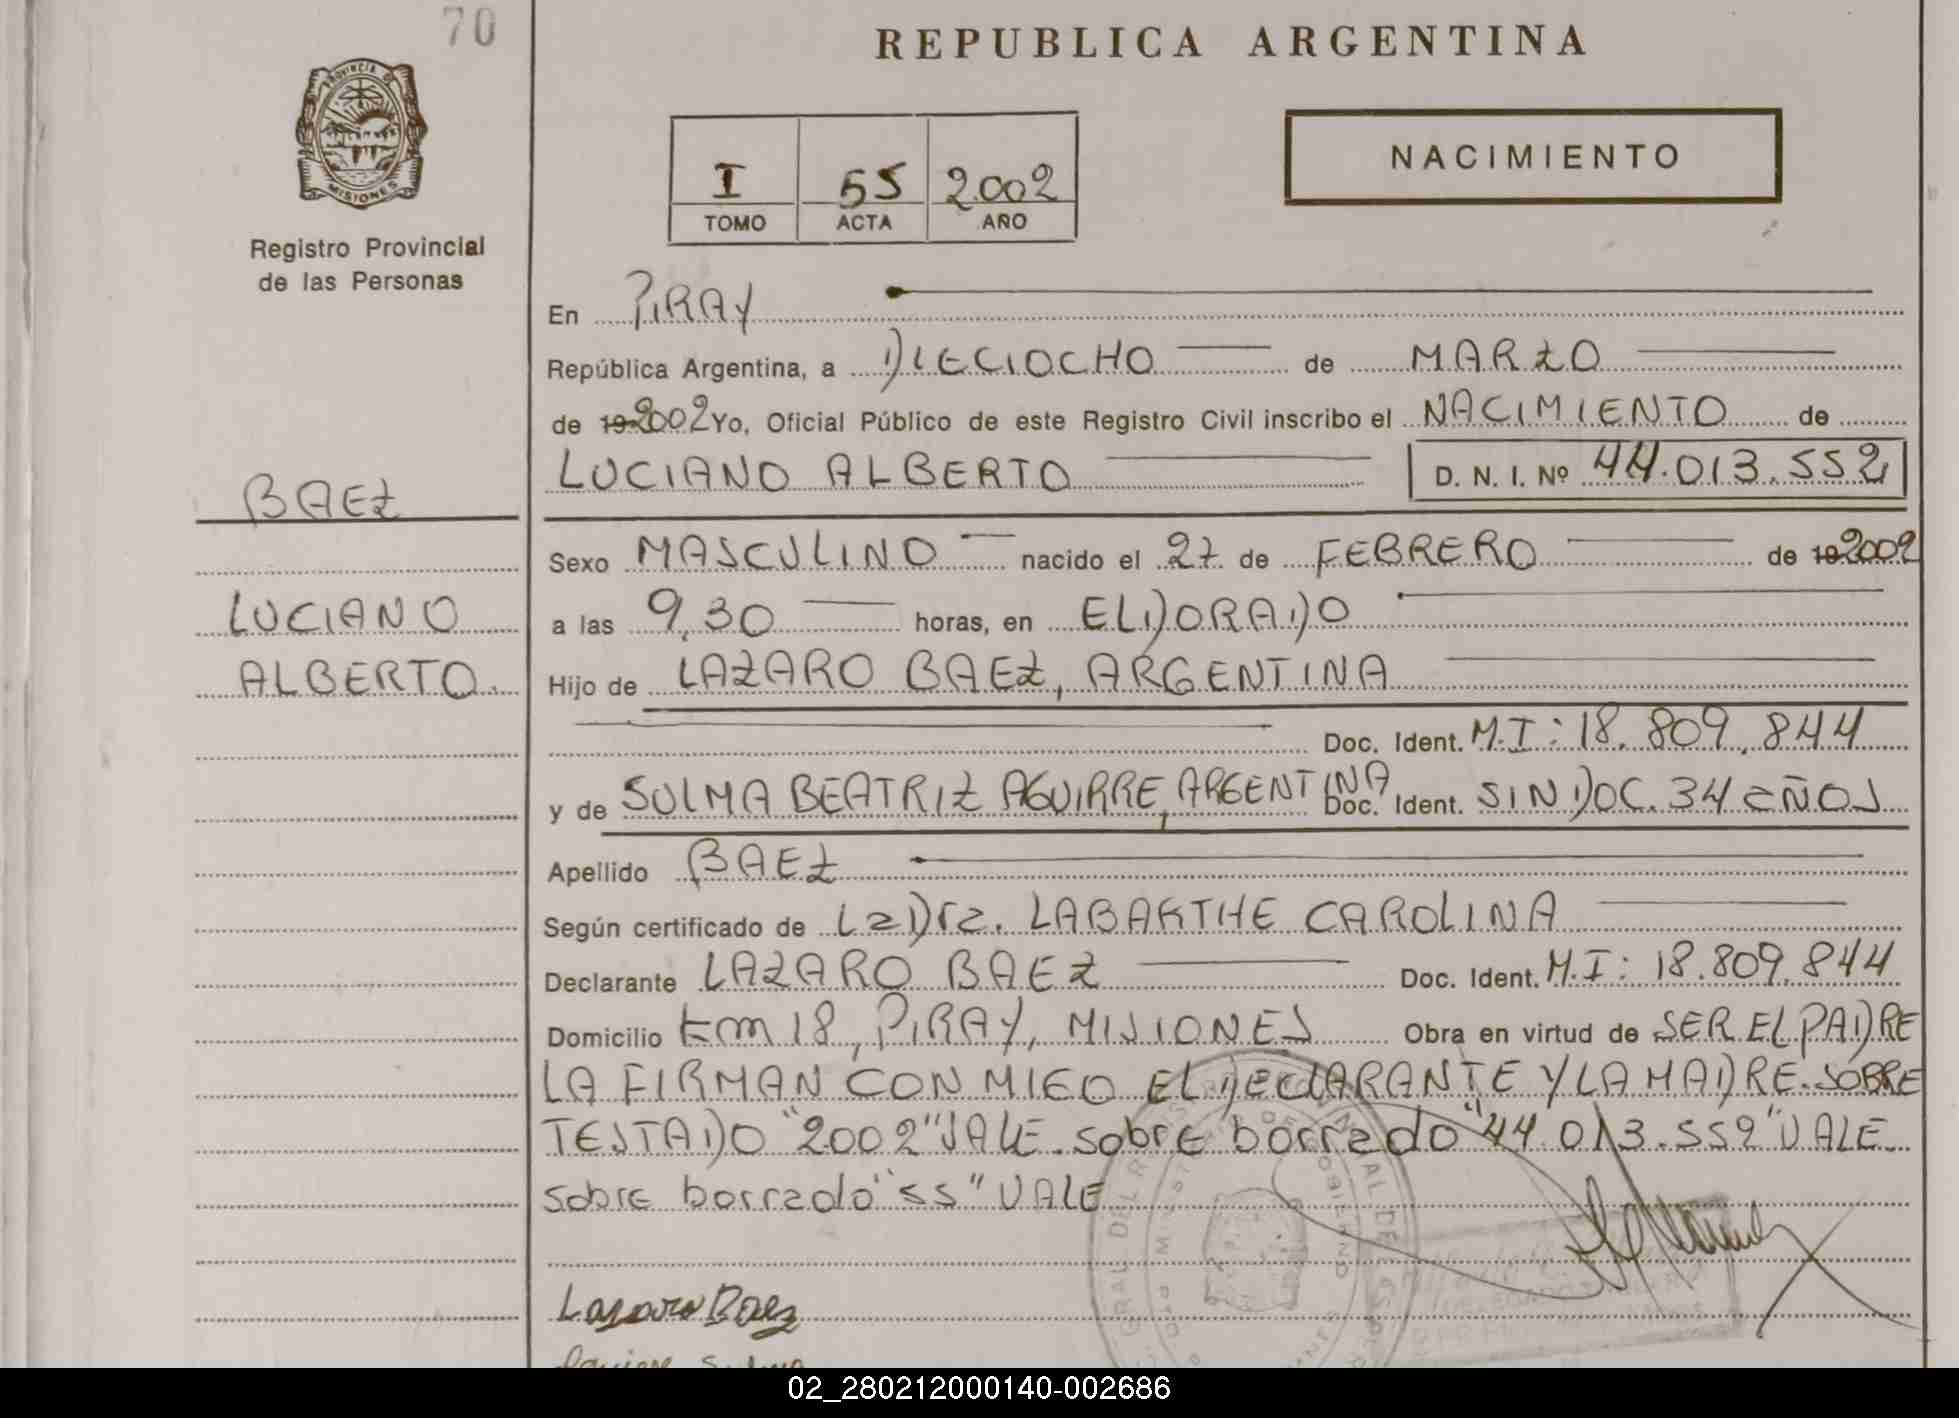 70
REPUBLICA ARGENTINA
PROVINCIA DE
MISIONES
Registro Provincial
de las Personas
I 55 2.002
TOMO ACTA AÑO
NACIMIENTO
En PIRAY
República Argentina, a DIECIOCHO de MARZO
de 19 2002 Yo, Oficial Público de este Registro Civil inscribo el NACIMIENTO de
LUCIANO ALBERTO D. N. I. Nº 44.013.552
BAEZ
Sexo MASCULINO nacido el 27 de FEBRERO de 19 2002
LUCIANO
a las 9,30 horas, en ELDORADO
ALBERTO.
Hijo de LAZARO BAEZ, ARGENTINA
Doc. Ident. M.I: 18.809.844
y de SULMA BEATRIZ AGUIRRE, ARGENTINA Doc. Ident. SIN DOC. 34 AÑOS
Apellido BAEZ
Según certificado de La Dra. LABARTHE CAROLINA
Declarante LAZARO BAEZ Doc. Ident. M.I: 18.809.844
Domicilio Km 18, PIRAY, MISIONES Obra en virtud de SER EL PADRE
LA FIRMAN CON MIGO EL DECLARANTE Y LA MADRE. SOBRE
TESTADO "2002" VALE. sobre borrado "44.013.552" VALE
sobre borrado "55" VALE
Lazaro Baez
02_280212000140-002686